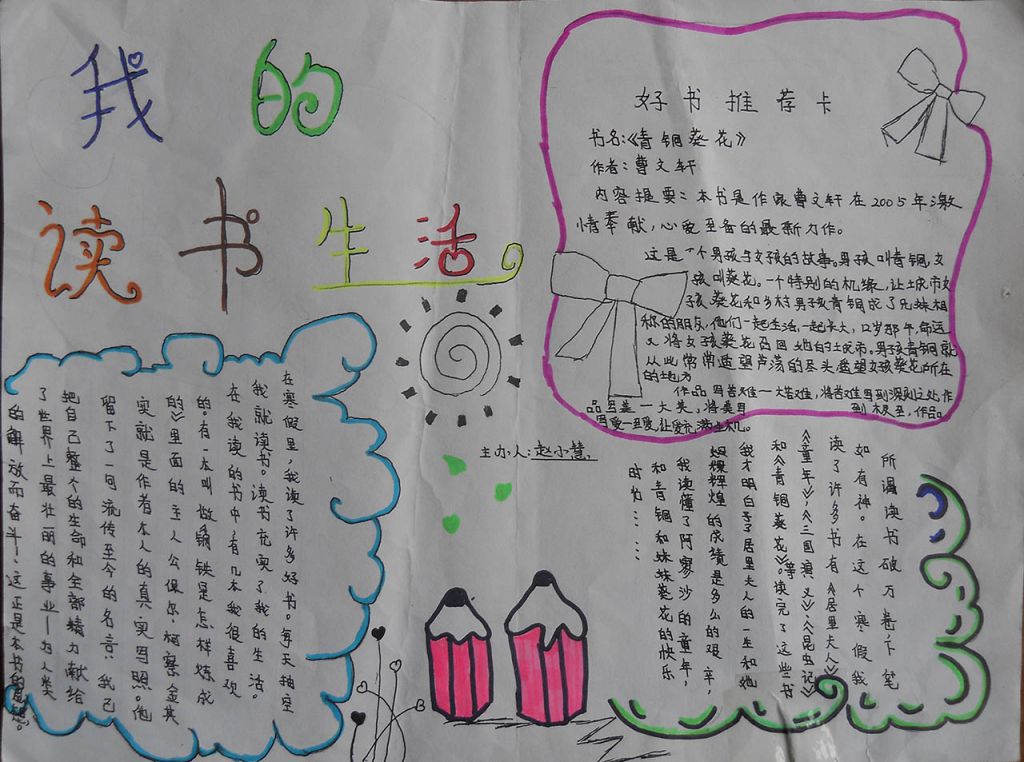 我的
读书生活
好书推荐卡
书名:《青铜葵花》
作者:曹文轩
内容提要:本书是作家曹文轩在2005年激
情奉献,心爱至备的最新力作。
这是一个男孩与女孩的故事。男孩叫青铜,女
孩叫葵花。一个特别的机缘,让城市女
孩葵花和乡村男孩青铜成了兄妹相
称的朋友,他们一起生活,一起长大,12岁那年,命运
又将女孩葵花召回她的城市。男孩青铜就
从此常常遥望芦荡的尽头葵花所在
的地方
作品写苦难—大苦难,将苦难写到深刻之处作
品写美—大美,将美写到极至,作品
写爱—至爱,让
主办人:赵小慧
在寒假里,我读了许多好书。每天抽空
我就读书。读书花实了我的生活。
在我读的书中,有几本我很喜欢
的。有一本叫做《钢铁是怎样炼成
的》里面的主人公保尔·柯察金其
实就是作者本人的真实写照。他
留下了一句流传至今的名言:我已
把自己整个的生命和全部精力献给
了世界上最壮丽的事业—为人类
的解放而奋斗!这正是本书的思想。
所谓读书破万卷下笔
如有神。在这个寒假我
读了许多书有《居里夫人》
《童年》《三国演义》《昆虫记》
和《青铜葵花》等。读完了这些书
我才明白了居里夫人的一生和她
辉煌的成绩是多么的艰辛,
我读懂了阿廖沙的童年,
和青铜和妹妹葵花的快乐
时光……